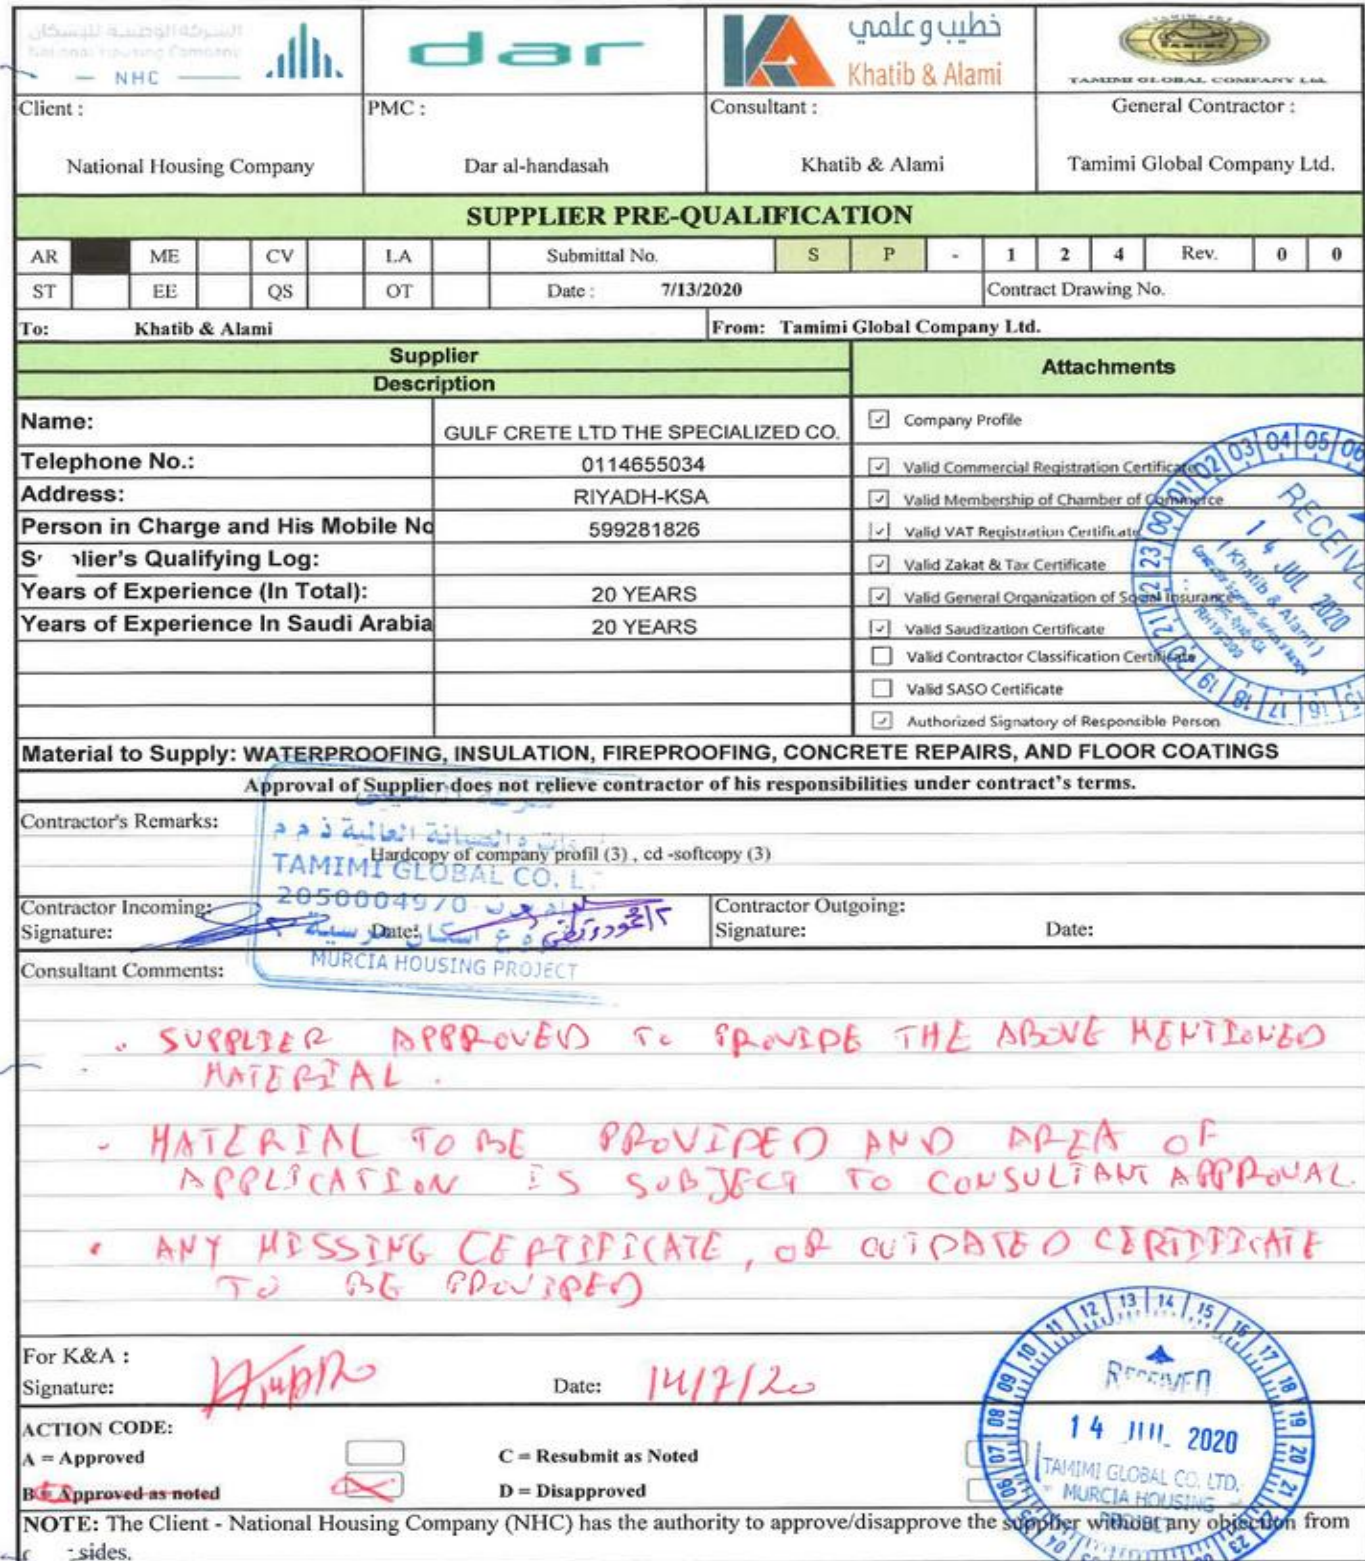 الشركة الوطنية للإسكان
National Housing Company
NHC
dar
خطيب وعلمي
Khatib & Alami
TAMIMI
TAMIMI GLOBAL COMPANY Ltd.
Client :
PMC :
Consultant :
General Contractor :
National Housing Company
Dar al-handasah
Khatib & Alami
Tamimi Global Company Ltd.
SUPPLIER PRE-QUALIFICATION
AR ME CV LA Submittal No. S P - 1 2 4 Rev. 0 0
ST EE QS OT Date : 7/13/2020 Contract Drawing No.
To: Khatib & Alami From: Tamimi Global Company Ltd.
Supplier
Description
Attachments
Name: GULF CRETE LTD THE SPECIALIZED CO.
Telephone No.: 0114655034
Address: RIYADH-KSA
Person in Charge and His Mobile No 599281826
S lier's Qualifying Log:
Years of Experience (In Total): 20 YEARS
Years of Experience In Saudi Arabia 20 YEARS
Company Profile
Valid Commercial Registration Certificate
Valid Membership of Chamber of Commerce
Valid VAT Registration Certificate
Valid Zakat & Tax Certificate
Valid General Organization of Social Insurance
Valid Saudization Certificate
Valid Contractor Classification Certificate
Valid SASO Certificate
Authorized Signatory of Responsible Person
RECEIVE
14 JUL 2020
(Khatib & Alami)
Material to Supply: WATERPROOFING, INSULATION, FIREPROOFING, CONCRETE REPAIRS, AND FLOOR COATINGS
Approval of Supplier does not relieve contractor of his responsibilities under contract's terms.
Contractor's Remarks:
Hardcopy of company profil (3) , cd -softcopy (3)
TAMIMI GLOBAL CO. L
2050004970
MURCIA HOUSING PROJECT
Contractor Incoming:
Signature: Date:
Contractor Outgoing:
Signature: Date:
Consultant Comments:
SUPPLIER APPROVED TO PROVIDE THE ABOVE MENTIONED
MATERIAL.
- MATERIAL TO BE PROVIDED AND AREA OF
APPLICATION IS SUBJECT TO CONSULTANT APPROVAL.
• ANY MISSING CERTIFICATE, OR OUTDATED CERTIFICATE
TO BE PROVIDED
For K&A :
Signature: Date: 14/7/20
ACTION CODE:
A = Approved C = Resubmit as Noted
B = Approved as noted D = Disapproved
RECEIVED
14 JUL 2020
TAMIMI GLOBAL CO. LTD.
MURCIA HOUSING
PROJECT
NOTE: The Client - National Housing Company (NHC) has the authority to approve/disapprove the supplier without any objection from
sides.